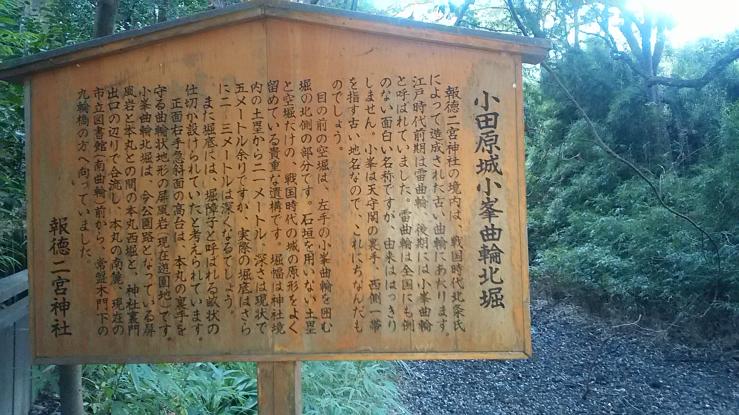 小田原城小峯曲輪北堀
報徳二宮神社の境内は、戦国時代北条氏
によって造成された古い曲輪にあたります。
江戸時代前期は雷曲輪、後期には小峯曲輪
と呼ばれていました。雷曲輪は全国にも例
のない面白い名称ですが、由来ははっきり
しません。小峯は天守閣の裏手、西側一帯
を指す古い地名なので、これにちなんだも
のでしょう。
目の前の空堀は、左手の小峯曲輪を囲む
堀の北側の部分です。石垣を用いない土塁
と空堀だけの、戦国時代の城の原形をよく
留めている貴重な遺構です。堀幅は神社境
内の土塁から二一メートル、深さは現状で
五メートル余りですが、実際の堀底はさら
に二、三メートルは深くなるでしょう。
また堀底には、堀障子と呼ばれる畝状の
仕切が設けられていたと考えられています。
正面右手急斜面の高台は、本丸の裏手を
守る曲輪状地形の屏風岩(現在遊園地)です。
小峯曲輪北堀は、今公園路となっている屏
風岩と本丸との間の本丸西堀と、神社裏門
出口の辺りで合流し、本丸の南麓、現在の
市立図書館(南曲輪)前から、常盤木門下の
九輪橋の方へ向っていました。
報徳二宮神社